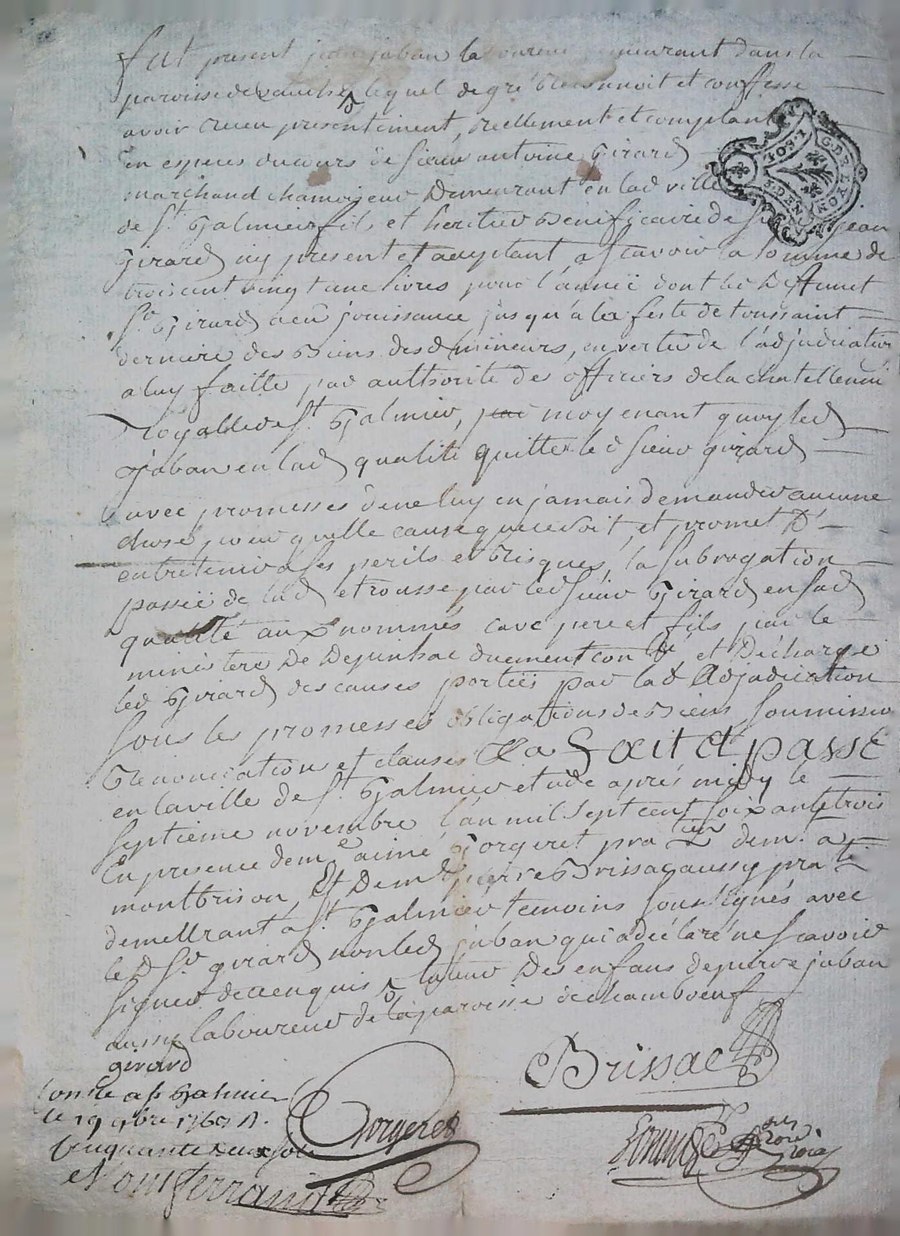 fut present jean jaban laboureur demeurant dans la
paroisse de lequel de gré a reconnoit et confesse
avoir receu presentement, reellement et comptant
en especes du cours de sieur antoine Girard
marchand chamoiseur demeurant en lad ville
de St. Galmier fils et heritier beneficiaire de jean
Girard icy present et acceptant ascavoir la somme de
trois cent vingt une livres pour l'année dont led deffunct
Sr. Girard a eu jouissance jusqu'à la feste de toussaint
derniere des biens desd mineurs, en vertu de l'adjudication
a luy faitte par authorité des officiers de la chatellenie
Royalle de St. Galmier, moyenant quoy led
jaban en lad qualité quitte led sieur girard
avec promesses de ne luy en jamais demander aucune
chose pour quelle cause que ce soit et promet d'
entretenir a ses perils et risques, la subrogation
passée de lad et rousse par led sieur Girard en sad
qualité aux nommés pere et fils par le
ministere de duement con.lé et décharge
led Girard des causes portées par lad Adjudication
sous les promesses obligations de biens soumission
Renonciation et clauses &a Fait et passé
en la ville de St. Galmier etude après midy le
septieme novembre l'an mil sept cent soixante trois
En presence de me. aimé Gorgeret pra dem. a
montbrison, Et de me. pierre Brissac aussy pra.
demeurant a St. Galmier temoins soussignés avec
led Sr. girard non led jaban qui a déclaré ne scavoir
signer de ce enquis, tuteur des enfans de pierre jaban
aussy laboureur de la paroisse de chambœuf
girard
Brissac
Conlle a St Galmier
le 19 9bre 1763 R.
Cinquante deux sols
Gorgeret
Montferrand
G.DE LYON
2.S.DEN